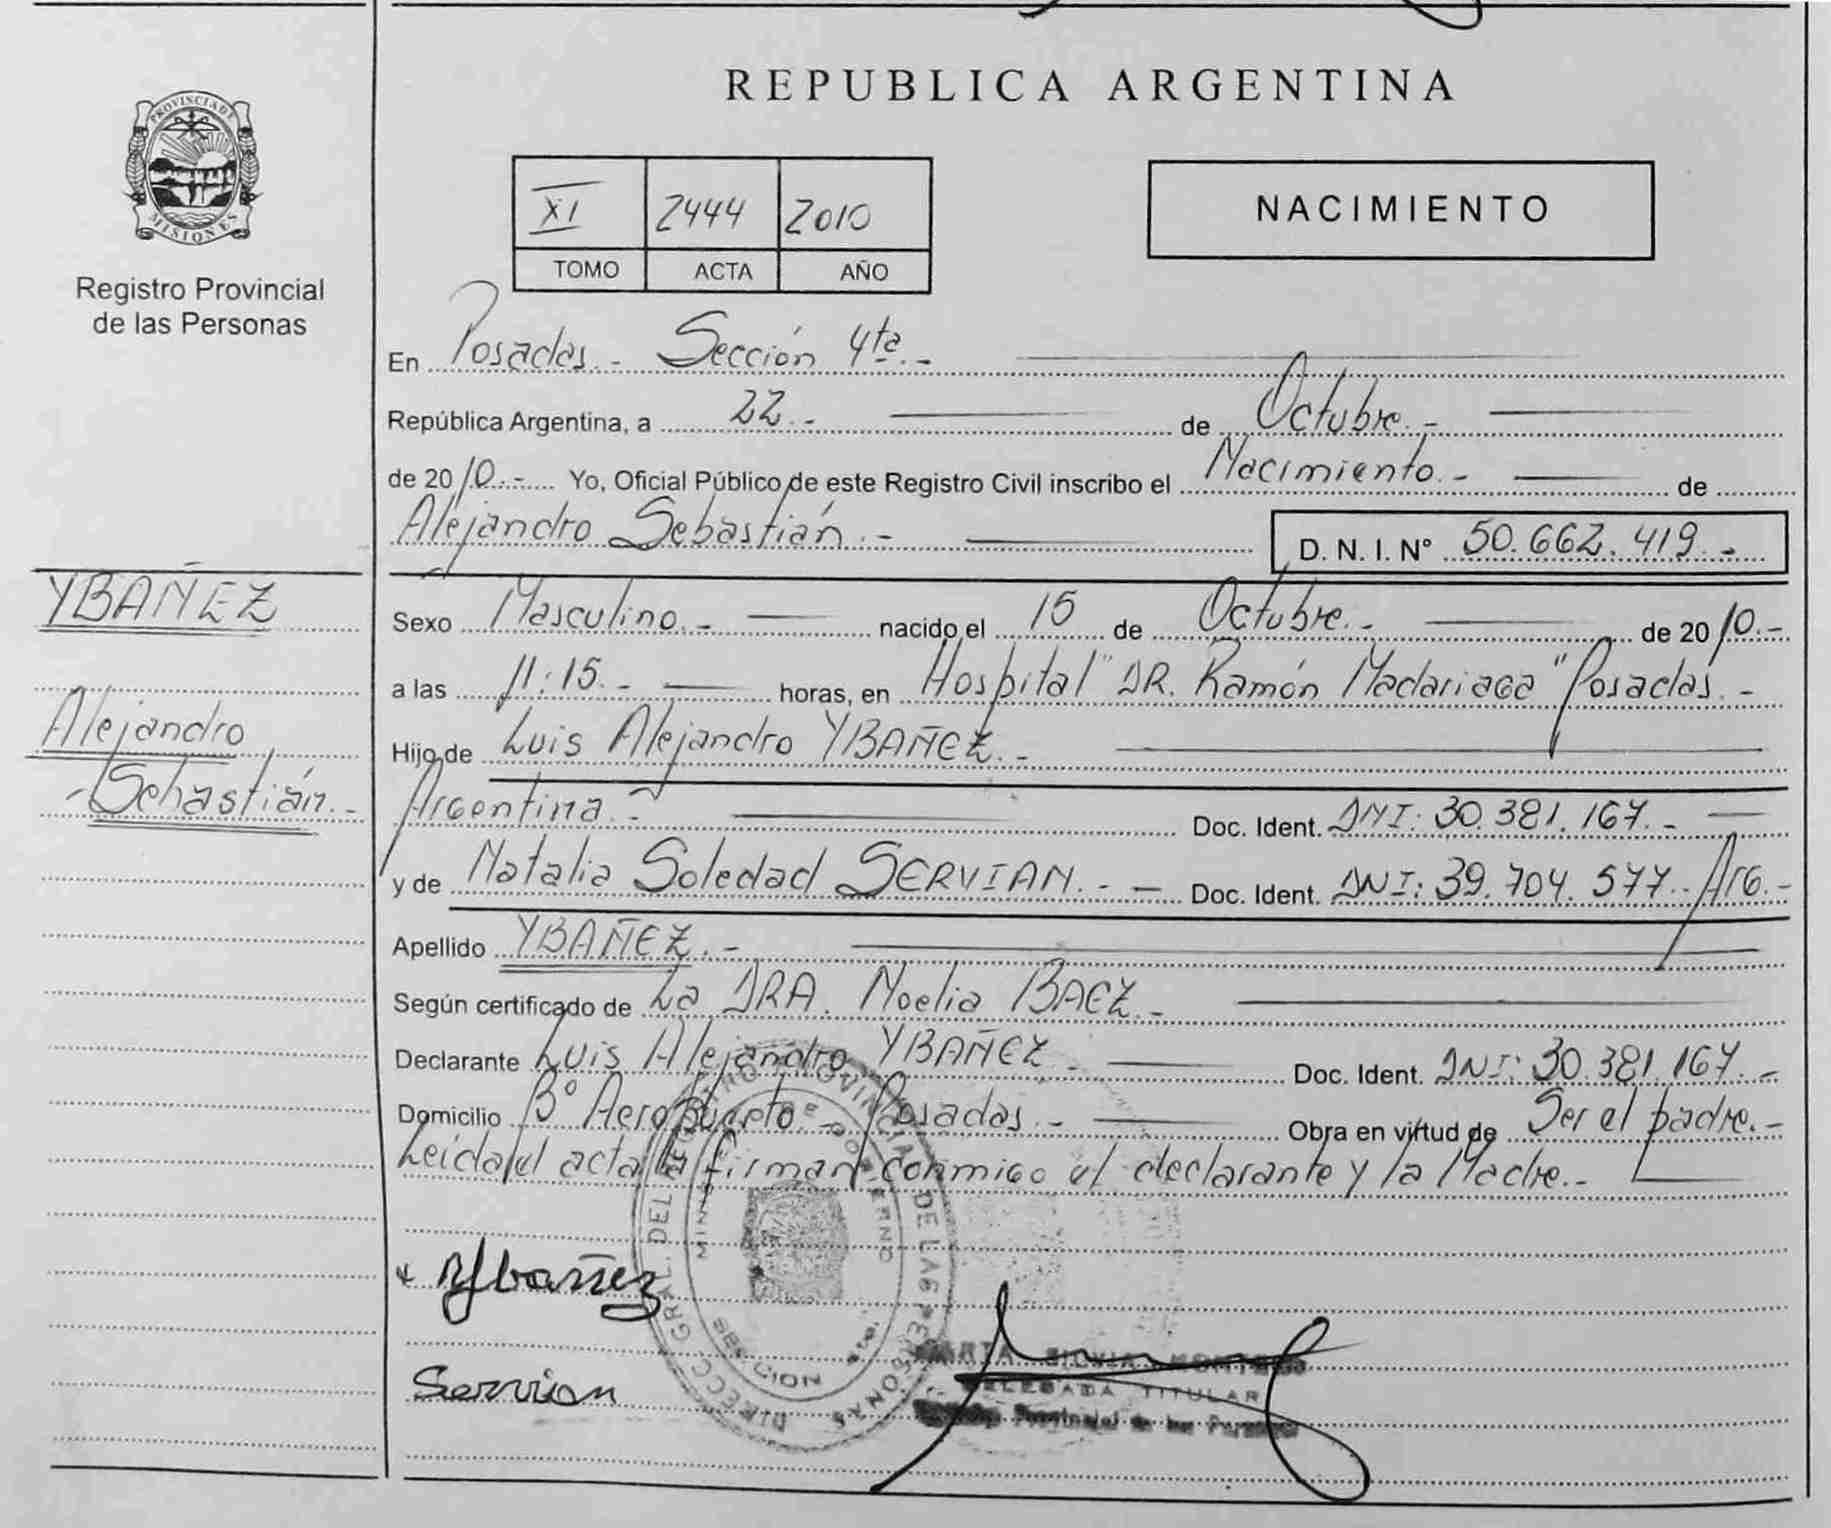 REPUBLICA ARGENTINA
PROVINCIA DE
MISIONES
Registro Provincial
de las Personas
XI 2444 2010
TOMO ACTA AÑO
NACIMIENTO
En Posadas.- Sección 4ta.-
República Argentina, a 22.- de Octubre.-
de 2010.- Yo, Oficial Público de este Registro Civil inscribo el Nacimiento.- de
Alejandro Sebastián.- D. N. I. N° 50.662.419.-
YBAÑEZ
Alejandro
-Sebastián.-
Sexo Masculino.- nacido el 15 de Octubre.- de 2010.-
a las 11:15.- horas, en Hospital "DR. Ramón Madariaga" Posadas.-
Hijo de Luis Alejandro YBAÑEZ.-
Argentina.- Doc. Ident. DNI: 30.381.167.-
y de Natalia Soledad SERVIAN.- Doc. Ident. DNI: 39.704.577.. Arg.-
Apellido YBAÑEZ.-
Según certificado de La DRA. Noelia BAEZ.-
Declarante Luis Alejandro YBAÑEZ.- Doc. Ident. DNI: 30.381.167.-
Domicilio B° Aeropuerto - Posadas.- Obra en virtud de Ser el padre.-
Leida el acta la firman conmigo el declarante y la Madre.-
DIRECC GRAL. DEL REGISTRO PROVINCIAL DE LAS PERSONAS
DE GOBIERNO
Ybañez
Servian
DELEGADA TITULAR
Provincial de las Personas